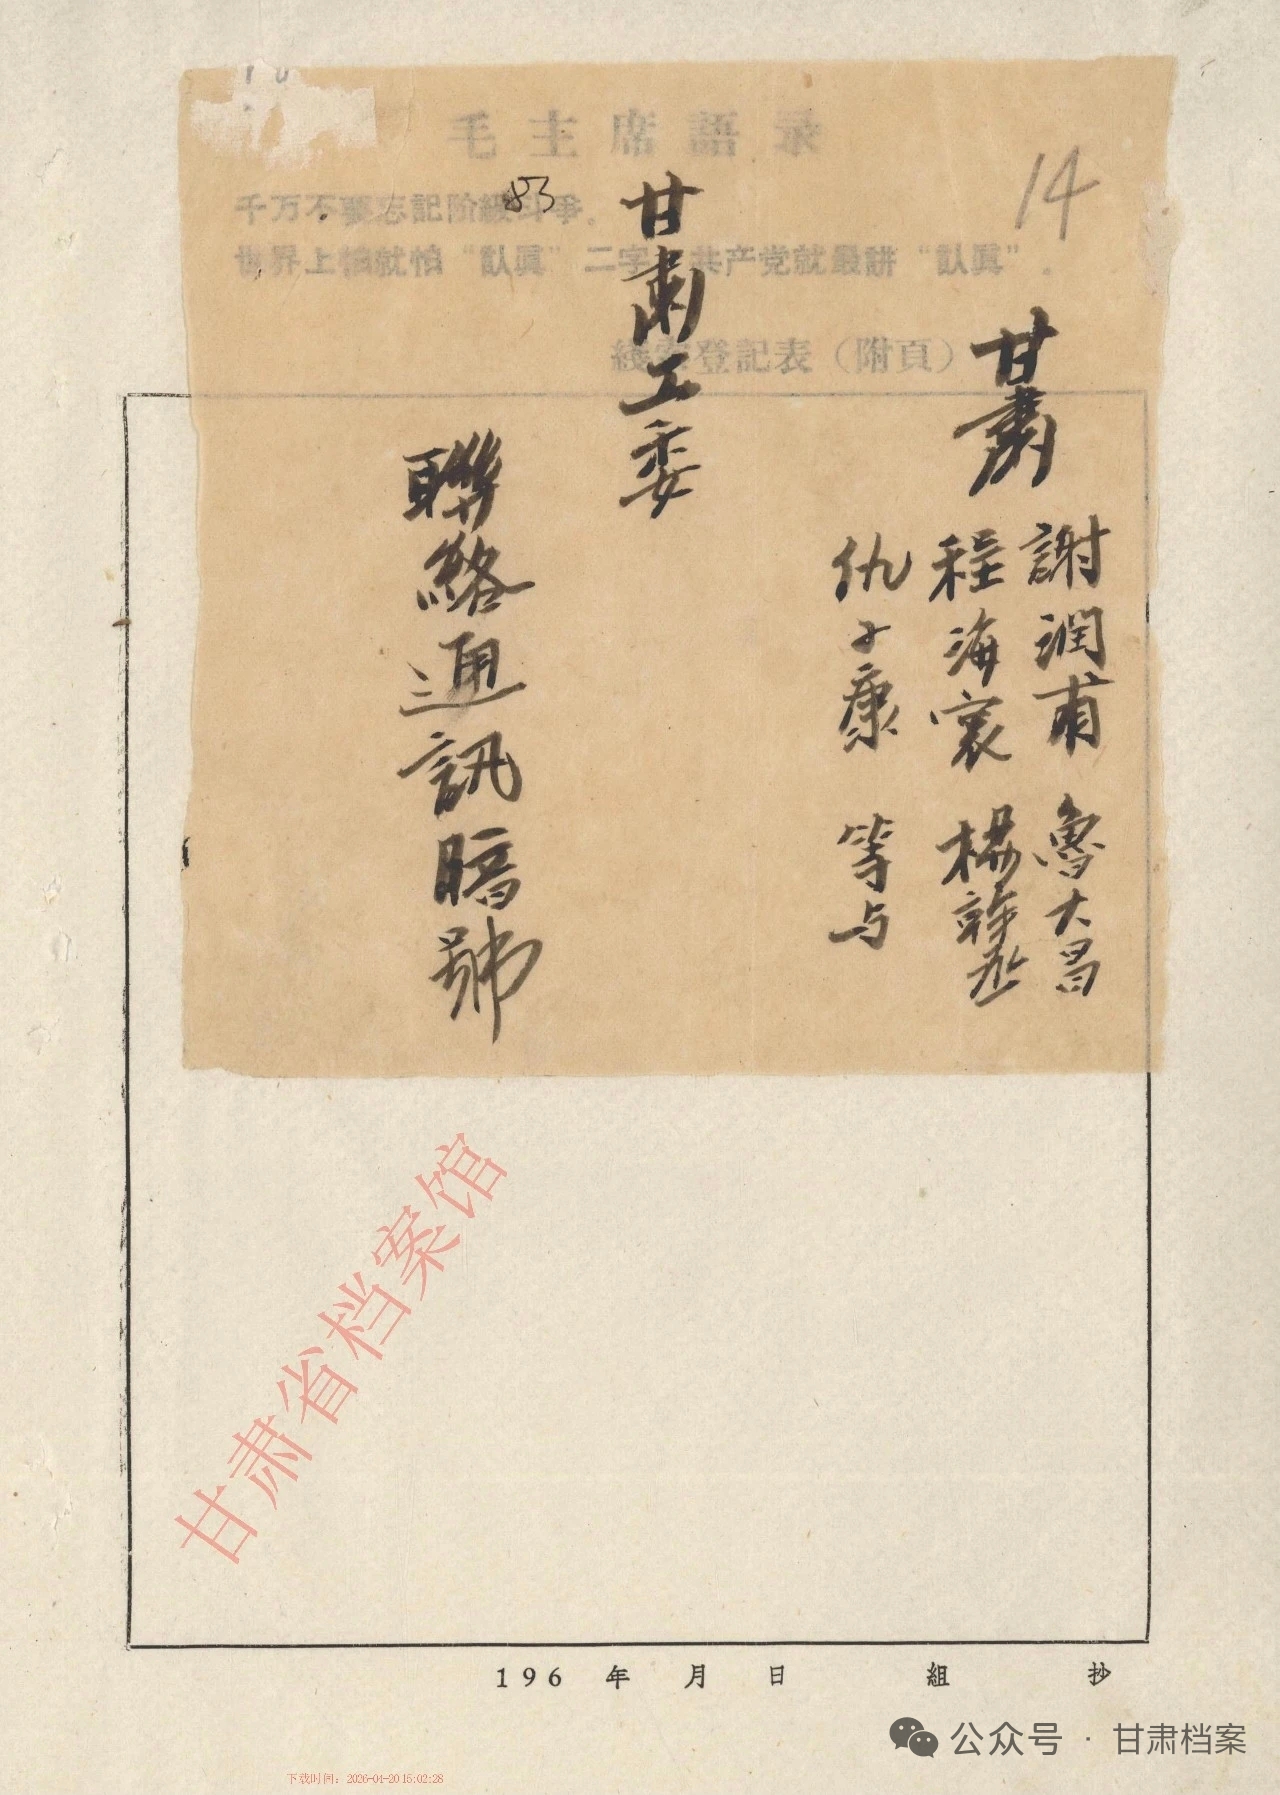 毛主席語录
千万不要忘記阶級斗爭.
世界上怕就怕“認眞”二字，共产党就最講“認眞”.
83
14
綫索登記表（附頁）
甘肅
謝潤甫 魯大昌
程海寰 楊
仇子康 等与
甘肅工委
聯絡通訊暗號
甘肃省档案馆
196 年 月 日 組 抄
公众号 · 甘肃档案
下载时间：2026-04-20 15:02:28